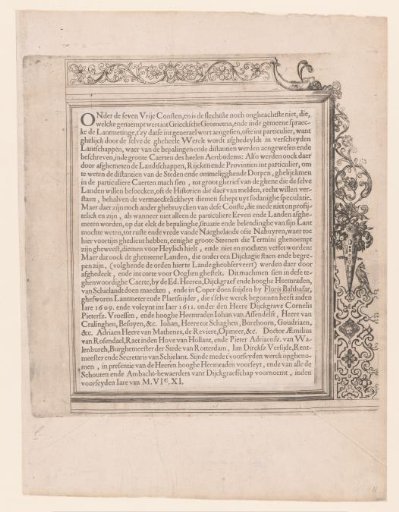 ONder de seven Vrije Consten, co is de slechtste noch ongheachtste niet, die,
welcke ghenaempt wert int Griecksche Geometria, ende in de gemeene spraec-
ke de Lantmetinge, t'zy datse int generael wort aengesien, ofte int particulier, want
ghelijck door de selve de geheele Werelt wort afghedeylt in verscheyden
Lantschappen, waer van de bepalingen ende distantien werden aengewesen ende
beschreven, inde groote Caerten des heelen Aerdbodems: Also werden oock daer
door afghemeten de Landtschappen, Rijcken ende Provintien int particulier, om
te weten de distantien van de Steden ende ommeligghende Dorpen, ghelijckmen
in de particuliere Caerten mach sien, tot groot gherief van de ghene die de selve
Landen willen besoecken, oft de Historien die daer van melden, recht willen ver-
staen, behalven de vermaeckelickheyt dienende tot
Maer daer zijn noch ander ghebruycken van dese Conste, die mede niet on profij-
telick en zijn, als wanneer niet alleen de particuliere Erven ende Landen afghe-
meten worden, op dat elck de bepalinghe, situatie ende belendinghe van sijn Lant
mochte weten, tot ruste ende vrede vande Naeghelande ofte Nabuyren, waer toe
hier voortijts ghedient hebben, eenighe groote Steenen die Termini ghenoempt
zijn gheweest, dienen voor Heylich hielt, ende niet en mochten verset worden:
Maer dat oock de ghemeene Landen, die onder een Dijckagie staen ende begre-
pen zijn, (volghende de orden hier te Lande gheobserveert) werden daer door
afghedeelt, ende int corte voor Ooghen ghestelt. Dit machmen sien in dese te-
ghenwoordighe Caerte, by de Ed. Heeren, Dijckgraef ende hooghe Heemraden,
van Schielandt doen maecken, ende in Coper doen snijden by Floris Balthasar,
ghesworen Lantmeter ende Plaetsnijder, die t'selve werck begonnen heeft inden
Iare 1609. ende voleynt int Iaer 1611. onder den Heere Dijckgrave Cornelis
Pietersz. Vroesen, ende hooghe Heemraden Iohan van Assendelft, Heere van
Cralinghen, Besoyen, &c. Iohan, Heere tot Schaghen, Burchhorn, Goudriaen,
&c. Adriaen Heere van Mathenes, de Reviere, Opmeer, &c. Doctor Æmilius
van Rosendael, Raet inden Hove van Hollant, ende Pieter Adriaensz. van Wa-
lenburch, Burghemeester der Stede van Rotterdam, Ian Dircksz Versijde, Rent-
meester ende Secretaris van Schielant. Sijnde mede t'voorseyden werck opgheno-
men, in presentie van de Heeren hooghe Heemraden voorseyt, ende van alle de
Schouten ende Ambacht-bewaerders vant Dijckgraefschap voornoemt, inden
voorseyden Iare van M.VIC. XI.